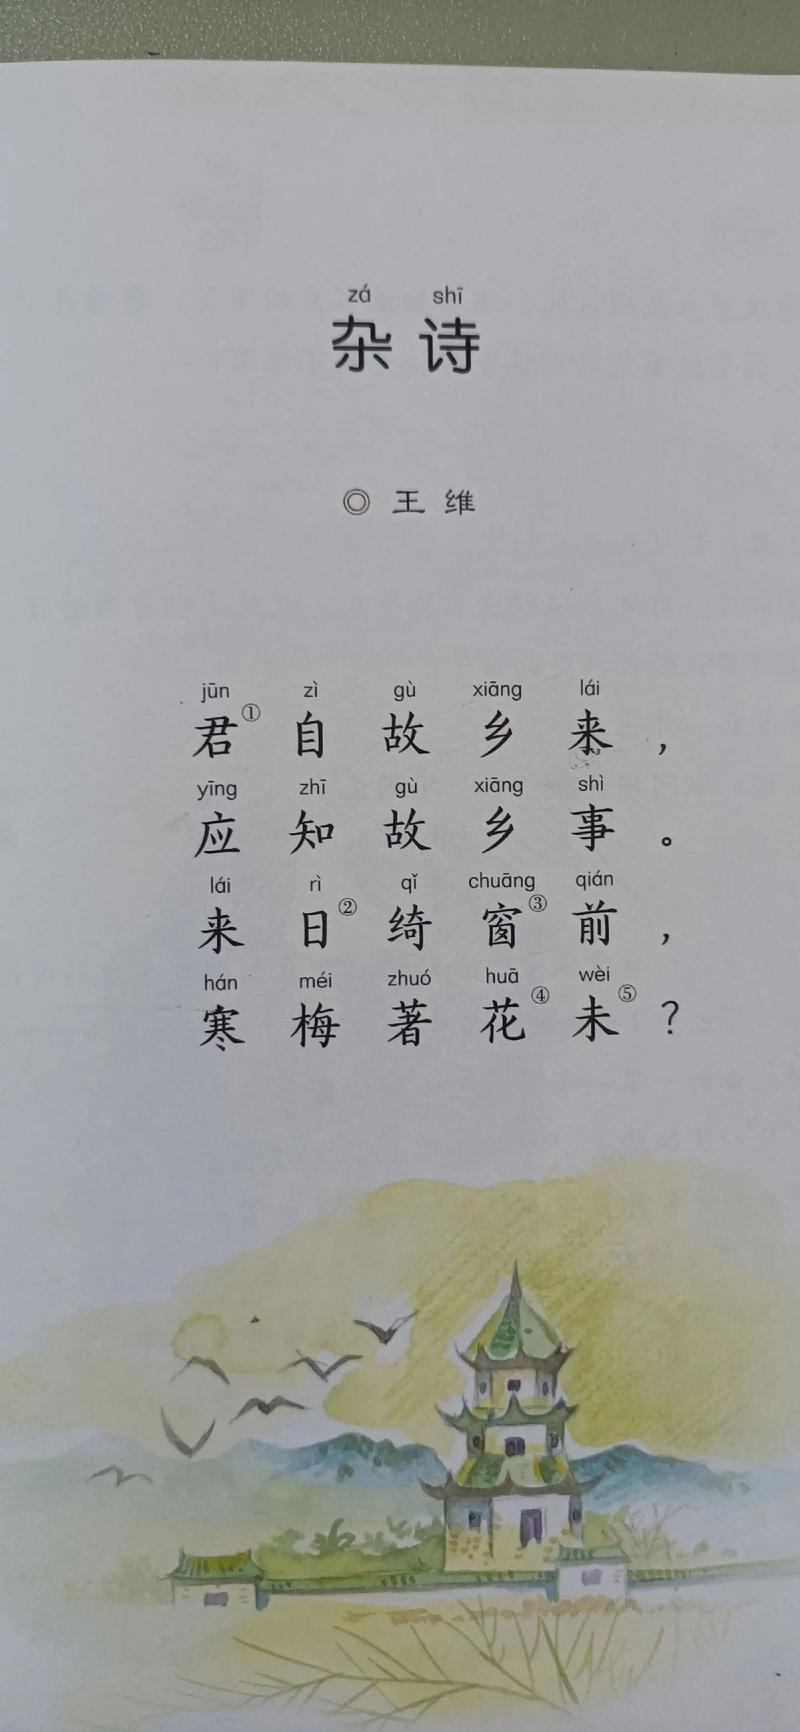 zá shī
杂诗
◎ 王维
jūn zì gù xiāng lái
君① 自故乡来，
yīng zhī gù xiāng shì
应知故乡事。
lái rì qǐ chuāng qián
来日② 绮窗③ 前，
hán méi zhuó huā wèi
寒梅著花④ 未⑤？